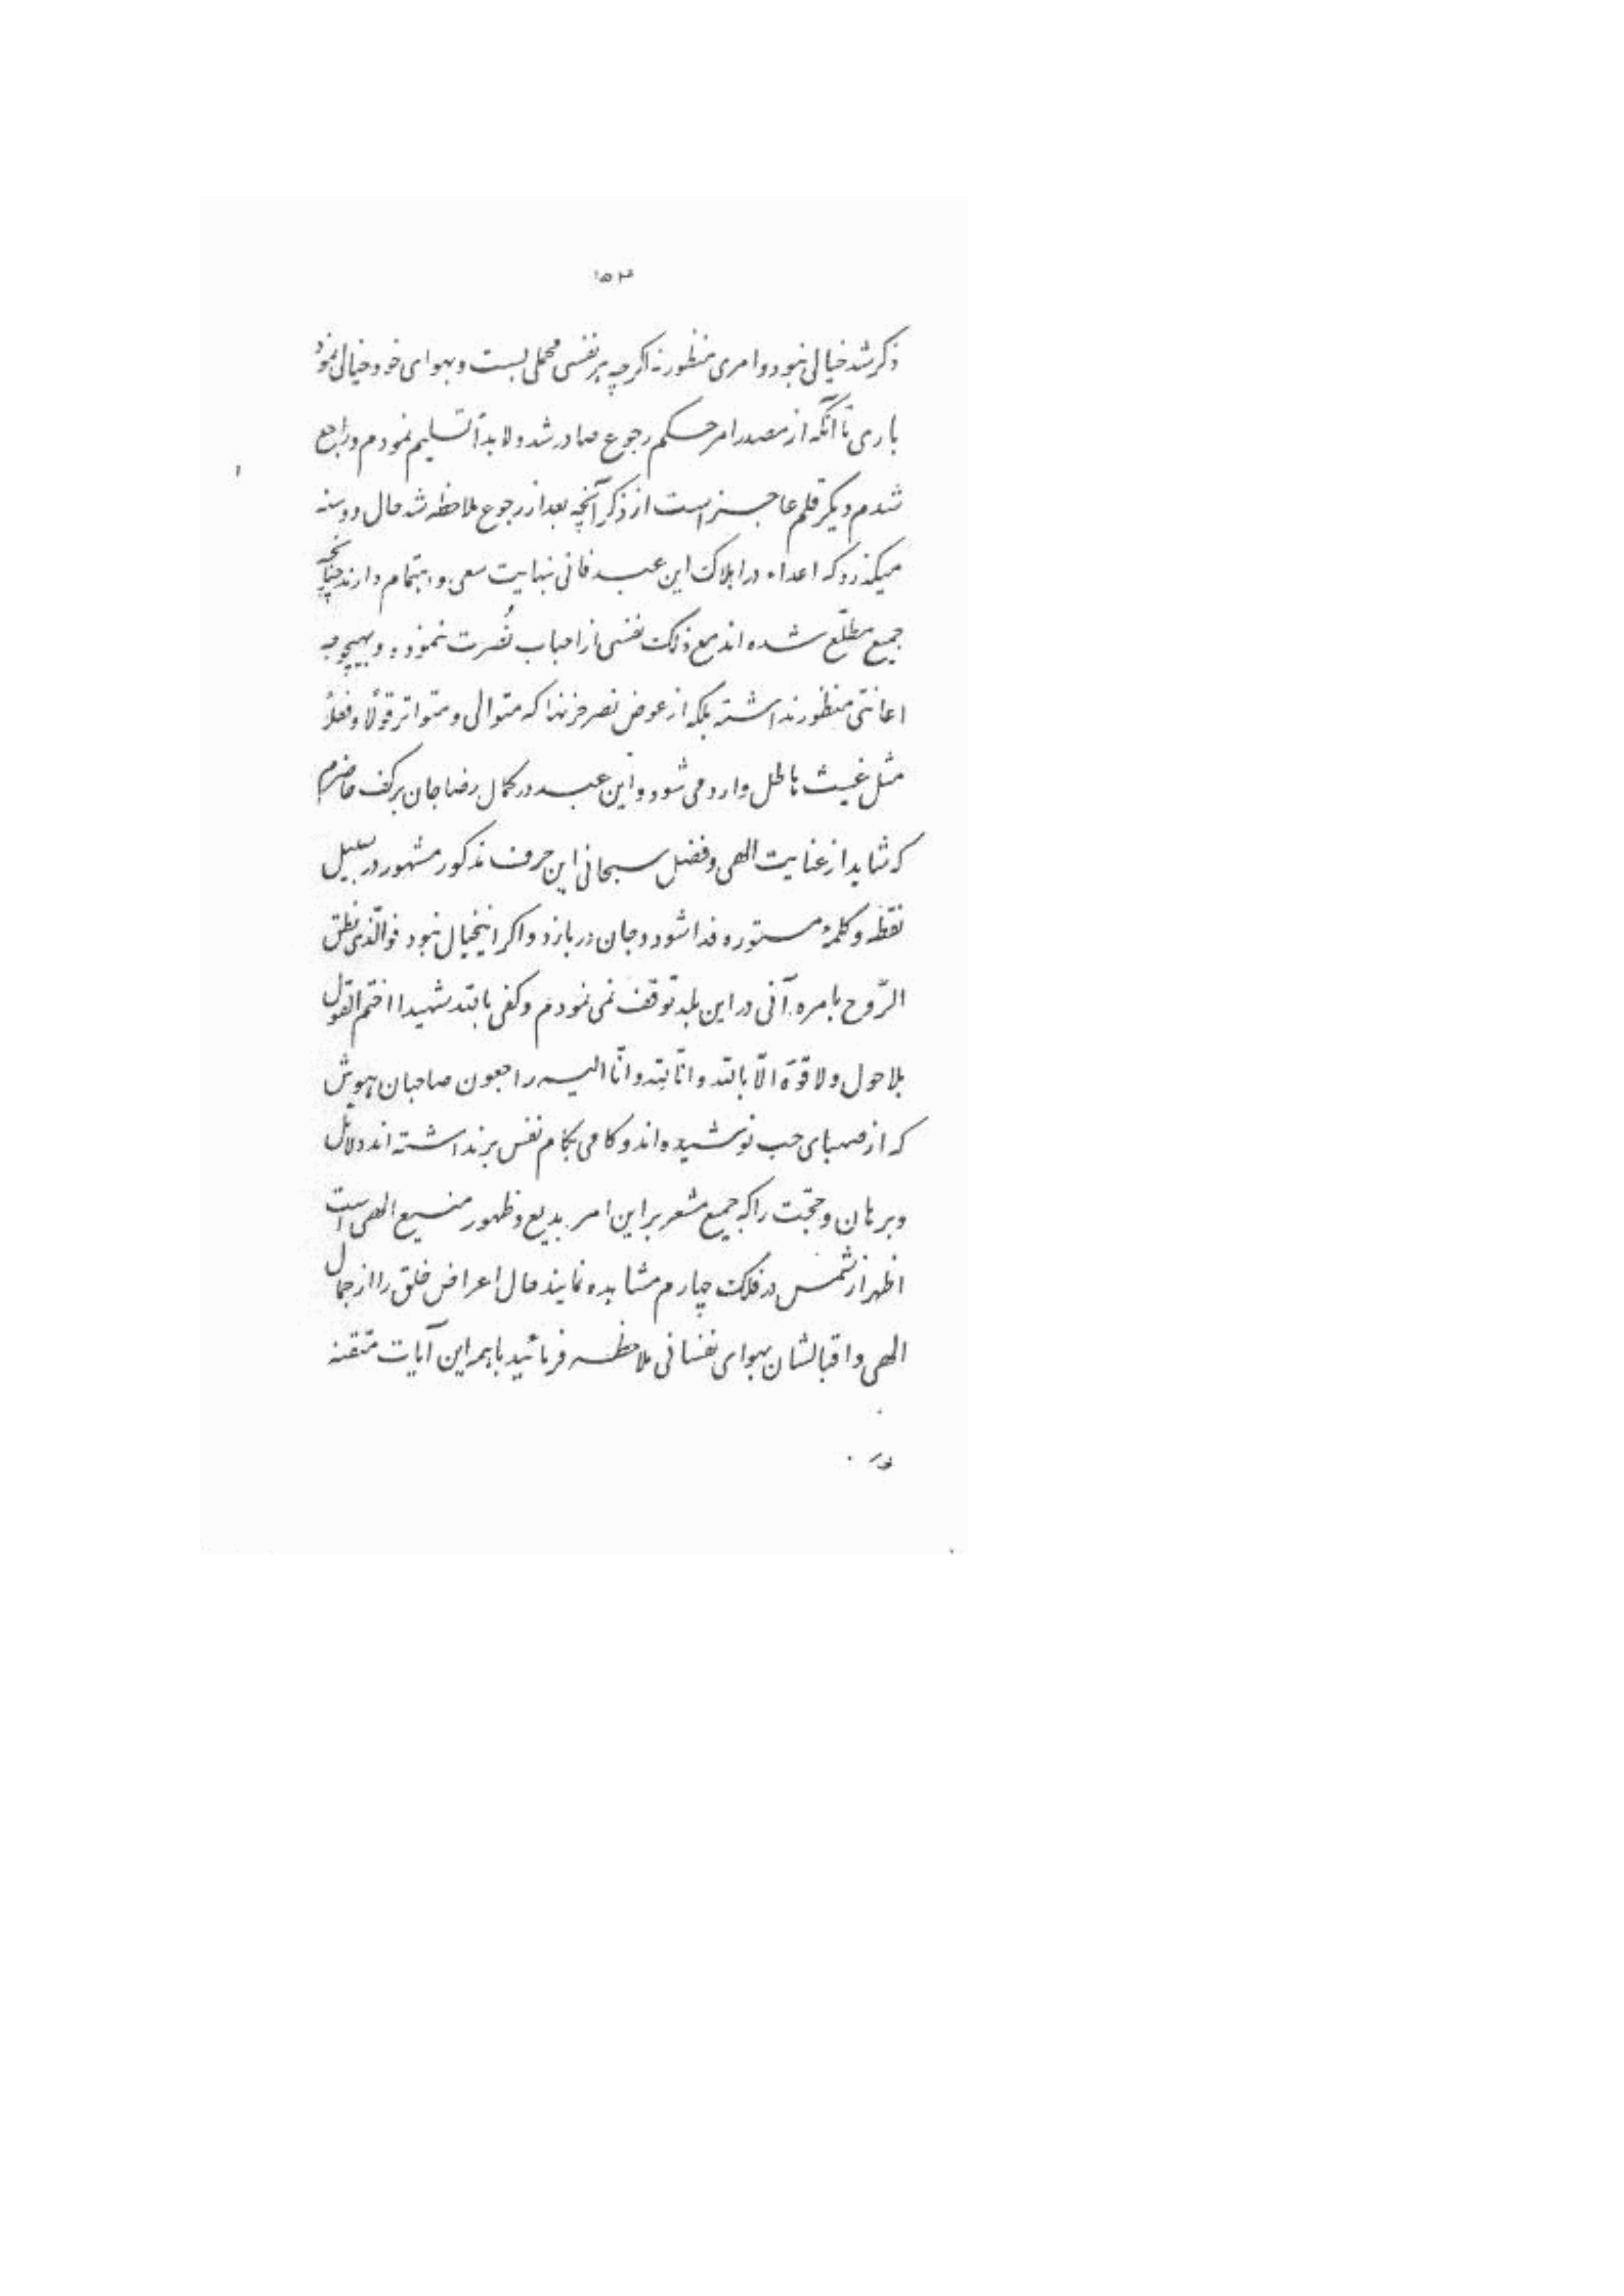 ۱۵۳
ذکر شد خیالی نبود و امری منظور نه اگرچه هر نفسی محملی بست و بهوای خود خیالی نمود
باری تا آنکه از مصدر امر حکم رجوع صادر شد و لابداً تسلیم نمودم و راجع
شدم دیگر قلم عاجز است از ذکر آنچه بعد از رجوع ملاحظه شد حال دو سنه
میگذرد که اعداء در اهلاک این عبد فانی بنهایت سعی و اهتمام دارند چنانچه
جمیع مطّلع شده‌اند مع ذلک نفسی از احباب نُصرت ننموده و بهیچوجه
اعانتی منظور نداشته بلکه از عوض نصر حزنها که متوالی و متواتر قولًا و فعلًا
مثل غیث هاطل وارد می‌شود و این عبد در کمال رضا جان بر کف حاضرم
که شاید از عنایت الهی و فضل سبحانی این حرف مذکور مشهور در سبیل
نقطه و کلمهٔ مستوره فدا شود و جان در بازد و اگر اینخیال نبود فوالّذی نطق
الرّوح بامره آنی در این بلد توقّف نمی‌نمودم و کفی بالله شهیدا اختم القول
بلا حول و لا قوّة الّا بالله و انّا لله و انّا الیه راجعون صاحبان هوش
که از صهبای حب نوشیده‌اند و گامی بکام نفس برنداشته‌اند دلائل
و برهان و حجّت را که جمیع مشعر بر این امر بدیع و ظهور منیع الهی است
اظهر از شمس در فلک چهارم مشاهده نمایند حال اعراض خلق را از جمال
الهی و اقبالشان بهوای نفسانی ملاحظه فرمائید با همه این آیات متقنه
و